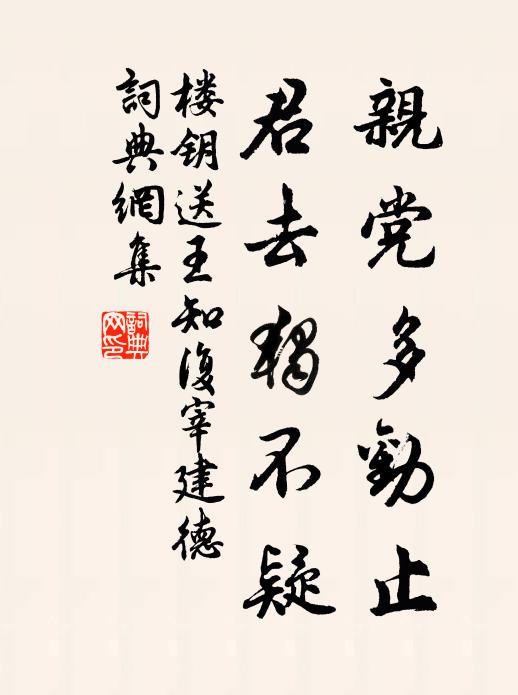 親党多勸止
君去獨不疑
楼钥送王知復宰建德
詞典網集
詞典
网印